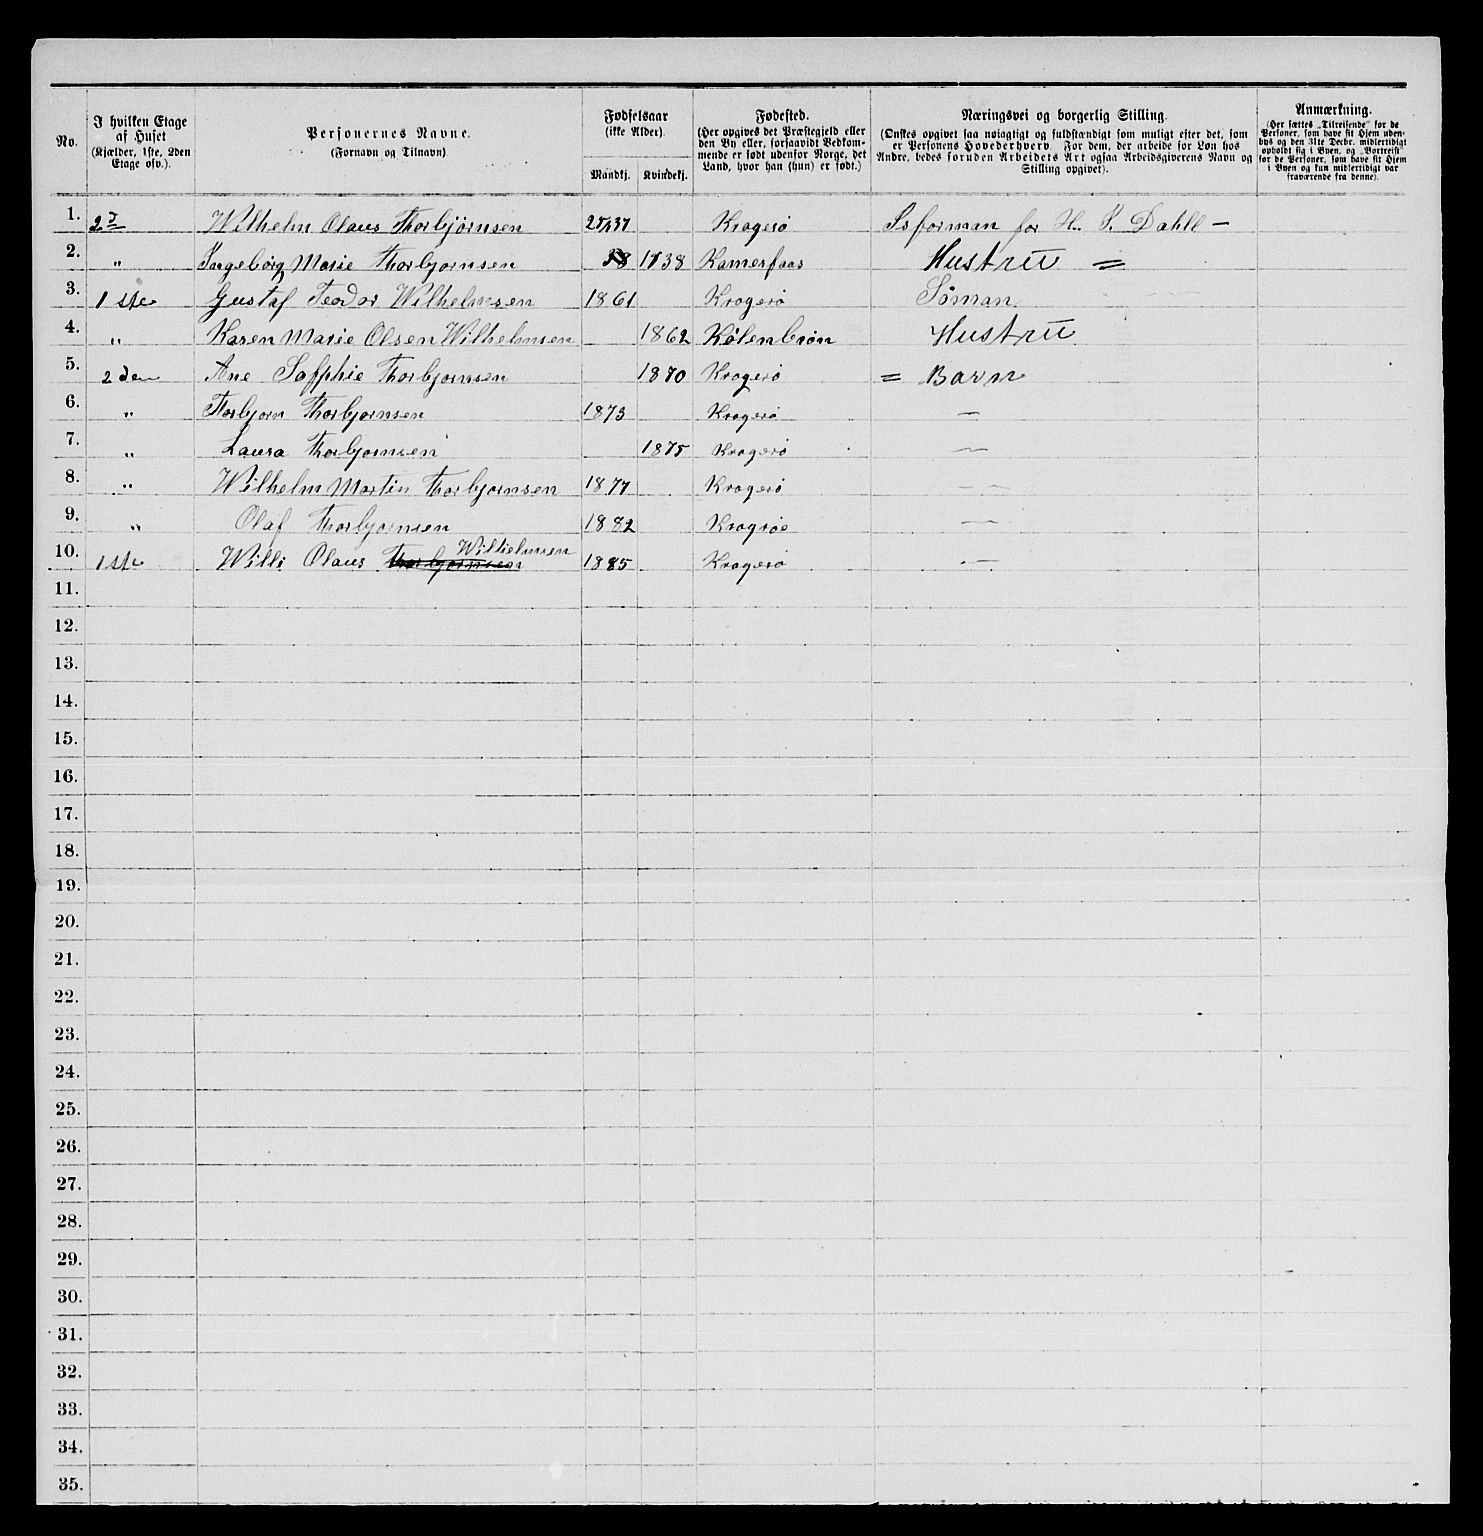 No.
I hvilken Etage af Huset (Kjælder, 1ste, 2den Etage osv.).
Personernes Navne. (Fornavn og Tilnavn)
Fødselsaar (ikke Alder).
Mandkj. Kvindekj.
Fødested. (Her opgives det Præstegjeld eller den By eller, forsaavidt Vedkommende er født udenfor Norge, det Land, hvor han (hun) er født.)
Næringsvei og borgerlig Stilling. (Ønskes opgivet saa nøiagtigt og fuldstændigt som muligt efter det, som er Personens Hovederhverv. For dem, der arbeide for Løn hos Andre, bedes foruden Arbeidets Art ogsaa Arbeidsgiverens Navn og Stilling opgivet).
Anmærkning. (Her sættes „Tilreisende" for de Personer, som have sit Hjem udenbys og den 31te Decbr. midlertidigt opholdt sig i Byen, og „Bortreist" for de Personer, som have sit Hjem i Byen og kun midlertidigt var fraværende fra denne).
1. Wilhelm Olaus Thorbjørnsen Kragerø Isforman for H. P. Dahll —
2. „ Ingebórg Marie Thorbjornsen 38 Kamerfaas Hustrú =
3. 1 ste Gustaf Teodor Wilhelmsen 1861 Kragerø Sóman
4. „ Karen Marie Olsen Wilhelmsen 1862 Kølenbrøn Hustrú
5. 2 den Ane Sofphie Thorbjornsen 1870 Kragerø = Barn
6. „ Torbjorn Thorbjornsen 1873 Kragerø —
7. „ Laura Thorbjornsen 1875 Kragerø —
8. „ Wilhelm Martin Thorbjornsen 1877 Kragerø —
9. „ Olaf Thorbjornsen 1882 Kragrøe —
10. 1 ste Willi Olaus Thorbjornsen Wilhelmsen 1885 Kragerø —
11.
12.
13.
14.
15.
16.
17.
18.
19.
20.
21.
22.
23.
24.
25.
26.
27.
28.
29.
30.
31.
32.
33.
34.
35.